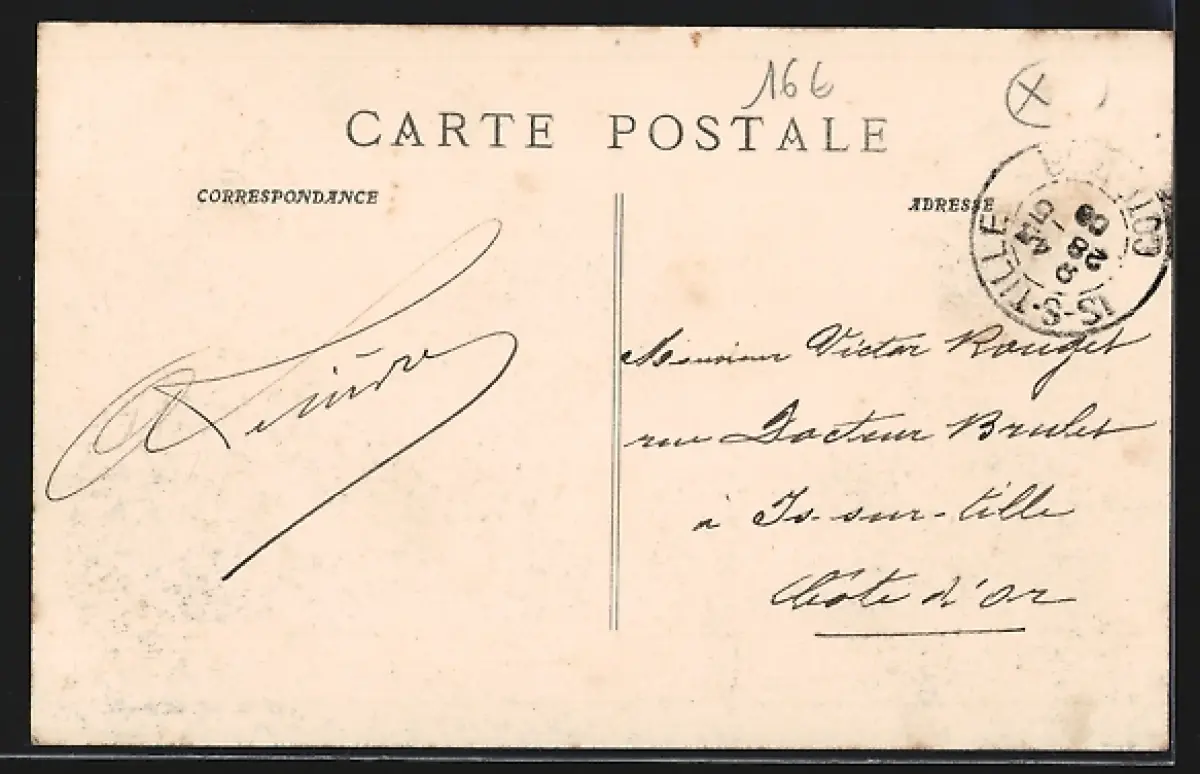 166
CARTE POSTALE
CORRESPONDANCE
ADRESSE
IS-S-TILLE
28
Monsieur Victor Rouget
rue Docteur Brulet
à Is-sur-tille
Côte d'Or